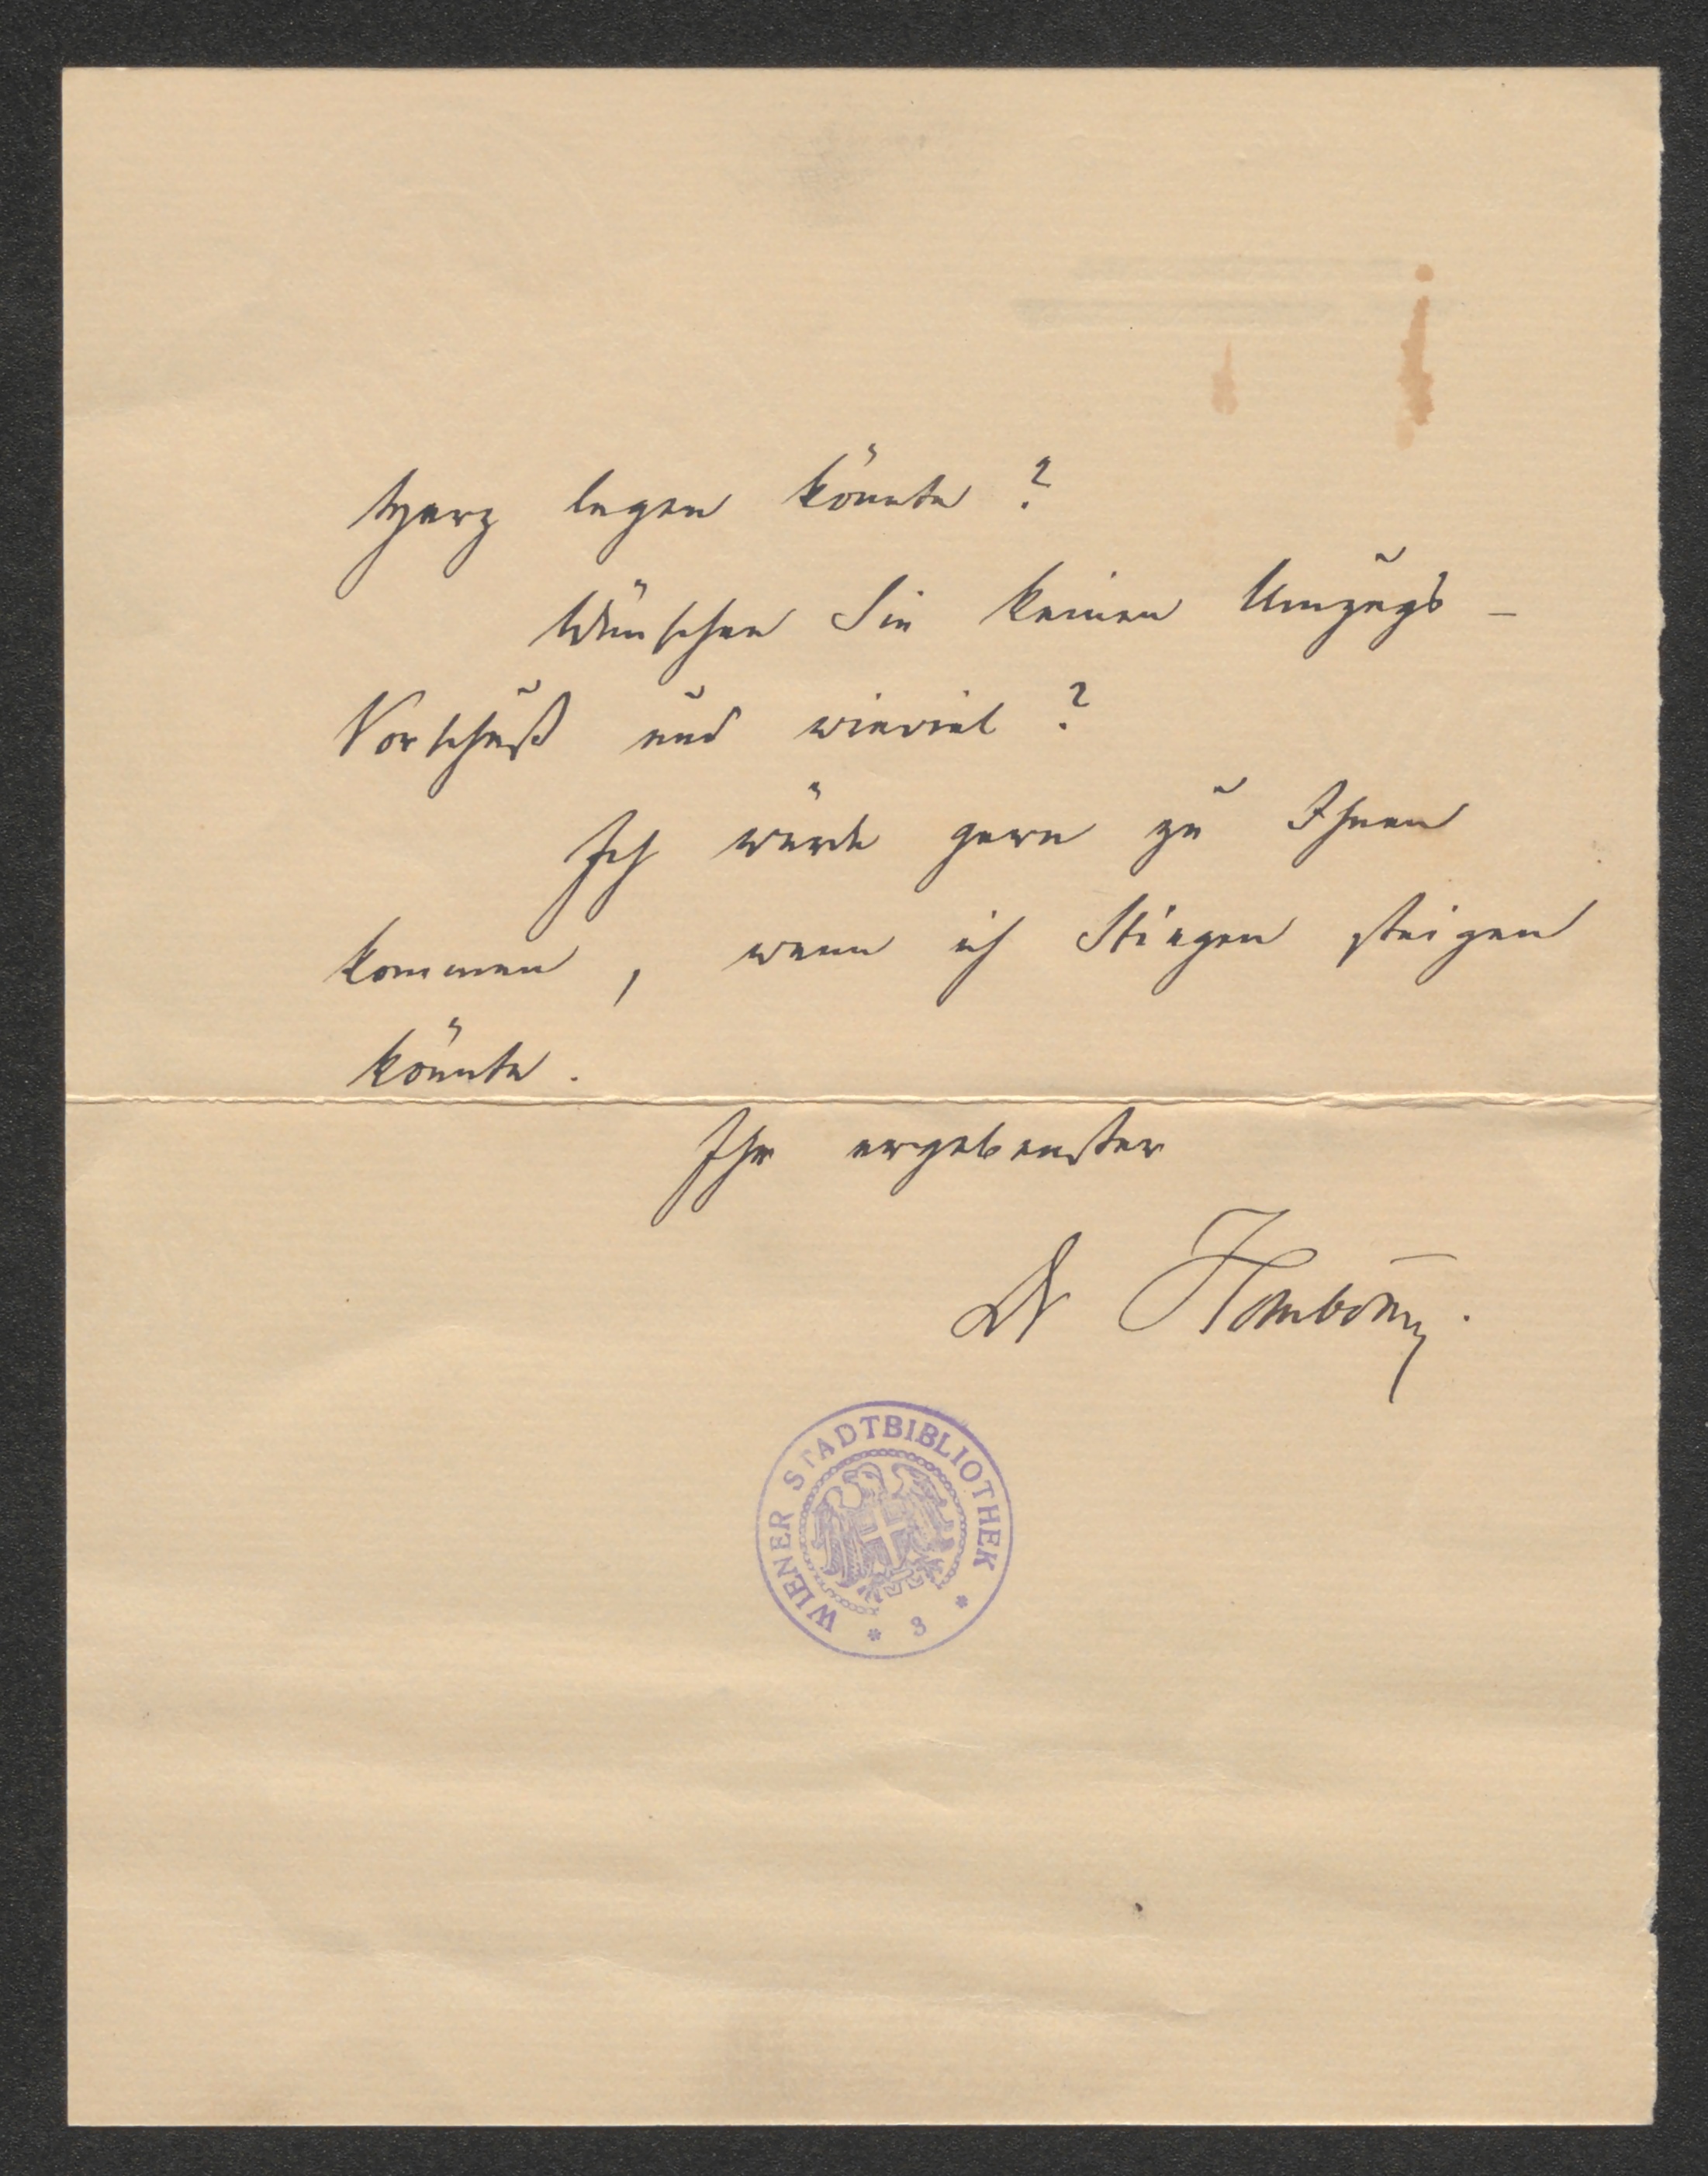 Herz legen könnte?
Wünschen Sie keinen Umzugs-
Vorschuß und wieviel?
Ich würde gern zu Ihnen
kommen, wenn ich Stiegen steigen
könnte.
Ihr ergebenster
Dr
WIENER STADTBIBLIOTHEK
* 3 *